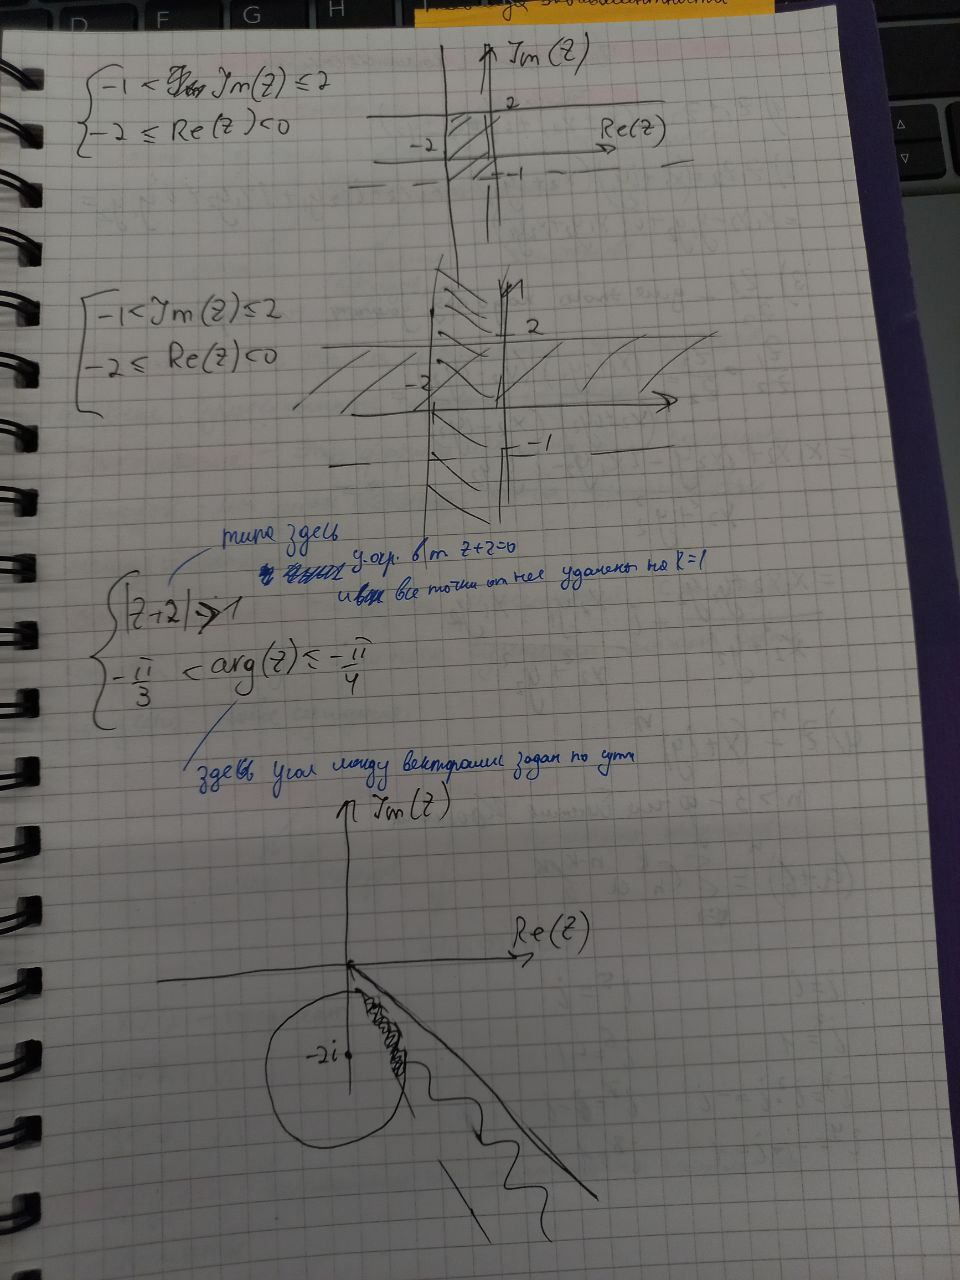 D F G H
-1 < Im(z) ≤ 2
-2 ≤ Re(z) < 0
Im(z)
2
Re(z)
-2
-1
-1 < Im(z) ≤ 2
-2 ≤ Re(z) < 0
2
-2
-1
типа здесь
в т z+2=0
все точки от нее удалены на R=1
|z+2| > 1
-π/3 < arg(z) ≤ -π/4
здесь угол между векторами задан по сути
Im(z)
Re(z)
-2i